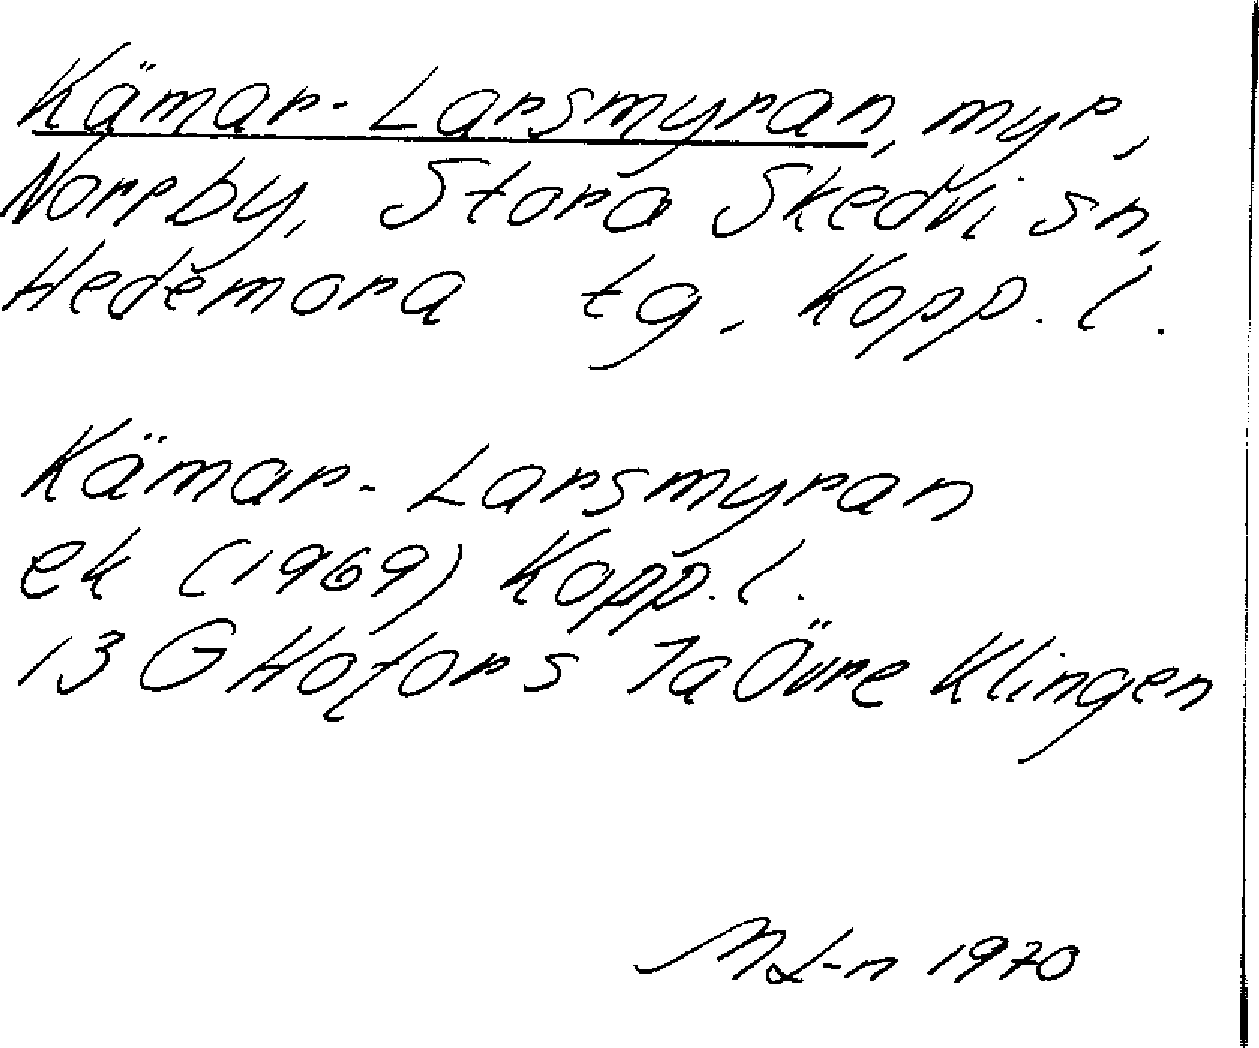 Kämar-Larsmyran, myr,
Norrby, Stora Skedvi sn,
Hedemora tg, Kopp. l.
Kämar-Larsmyran
ek (1969) Kopp. l.
13 G Hofors 7a Övre Klingen
ML-n 1970